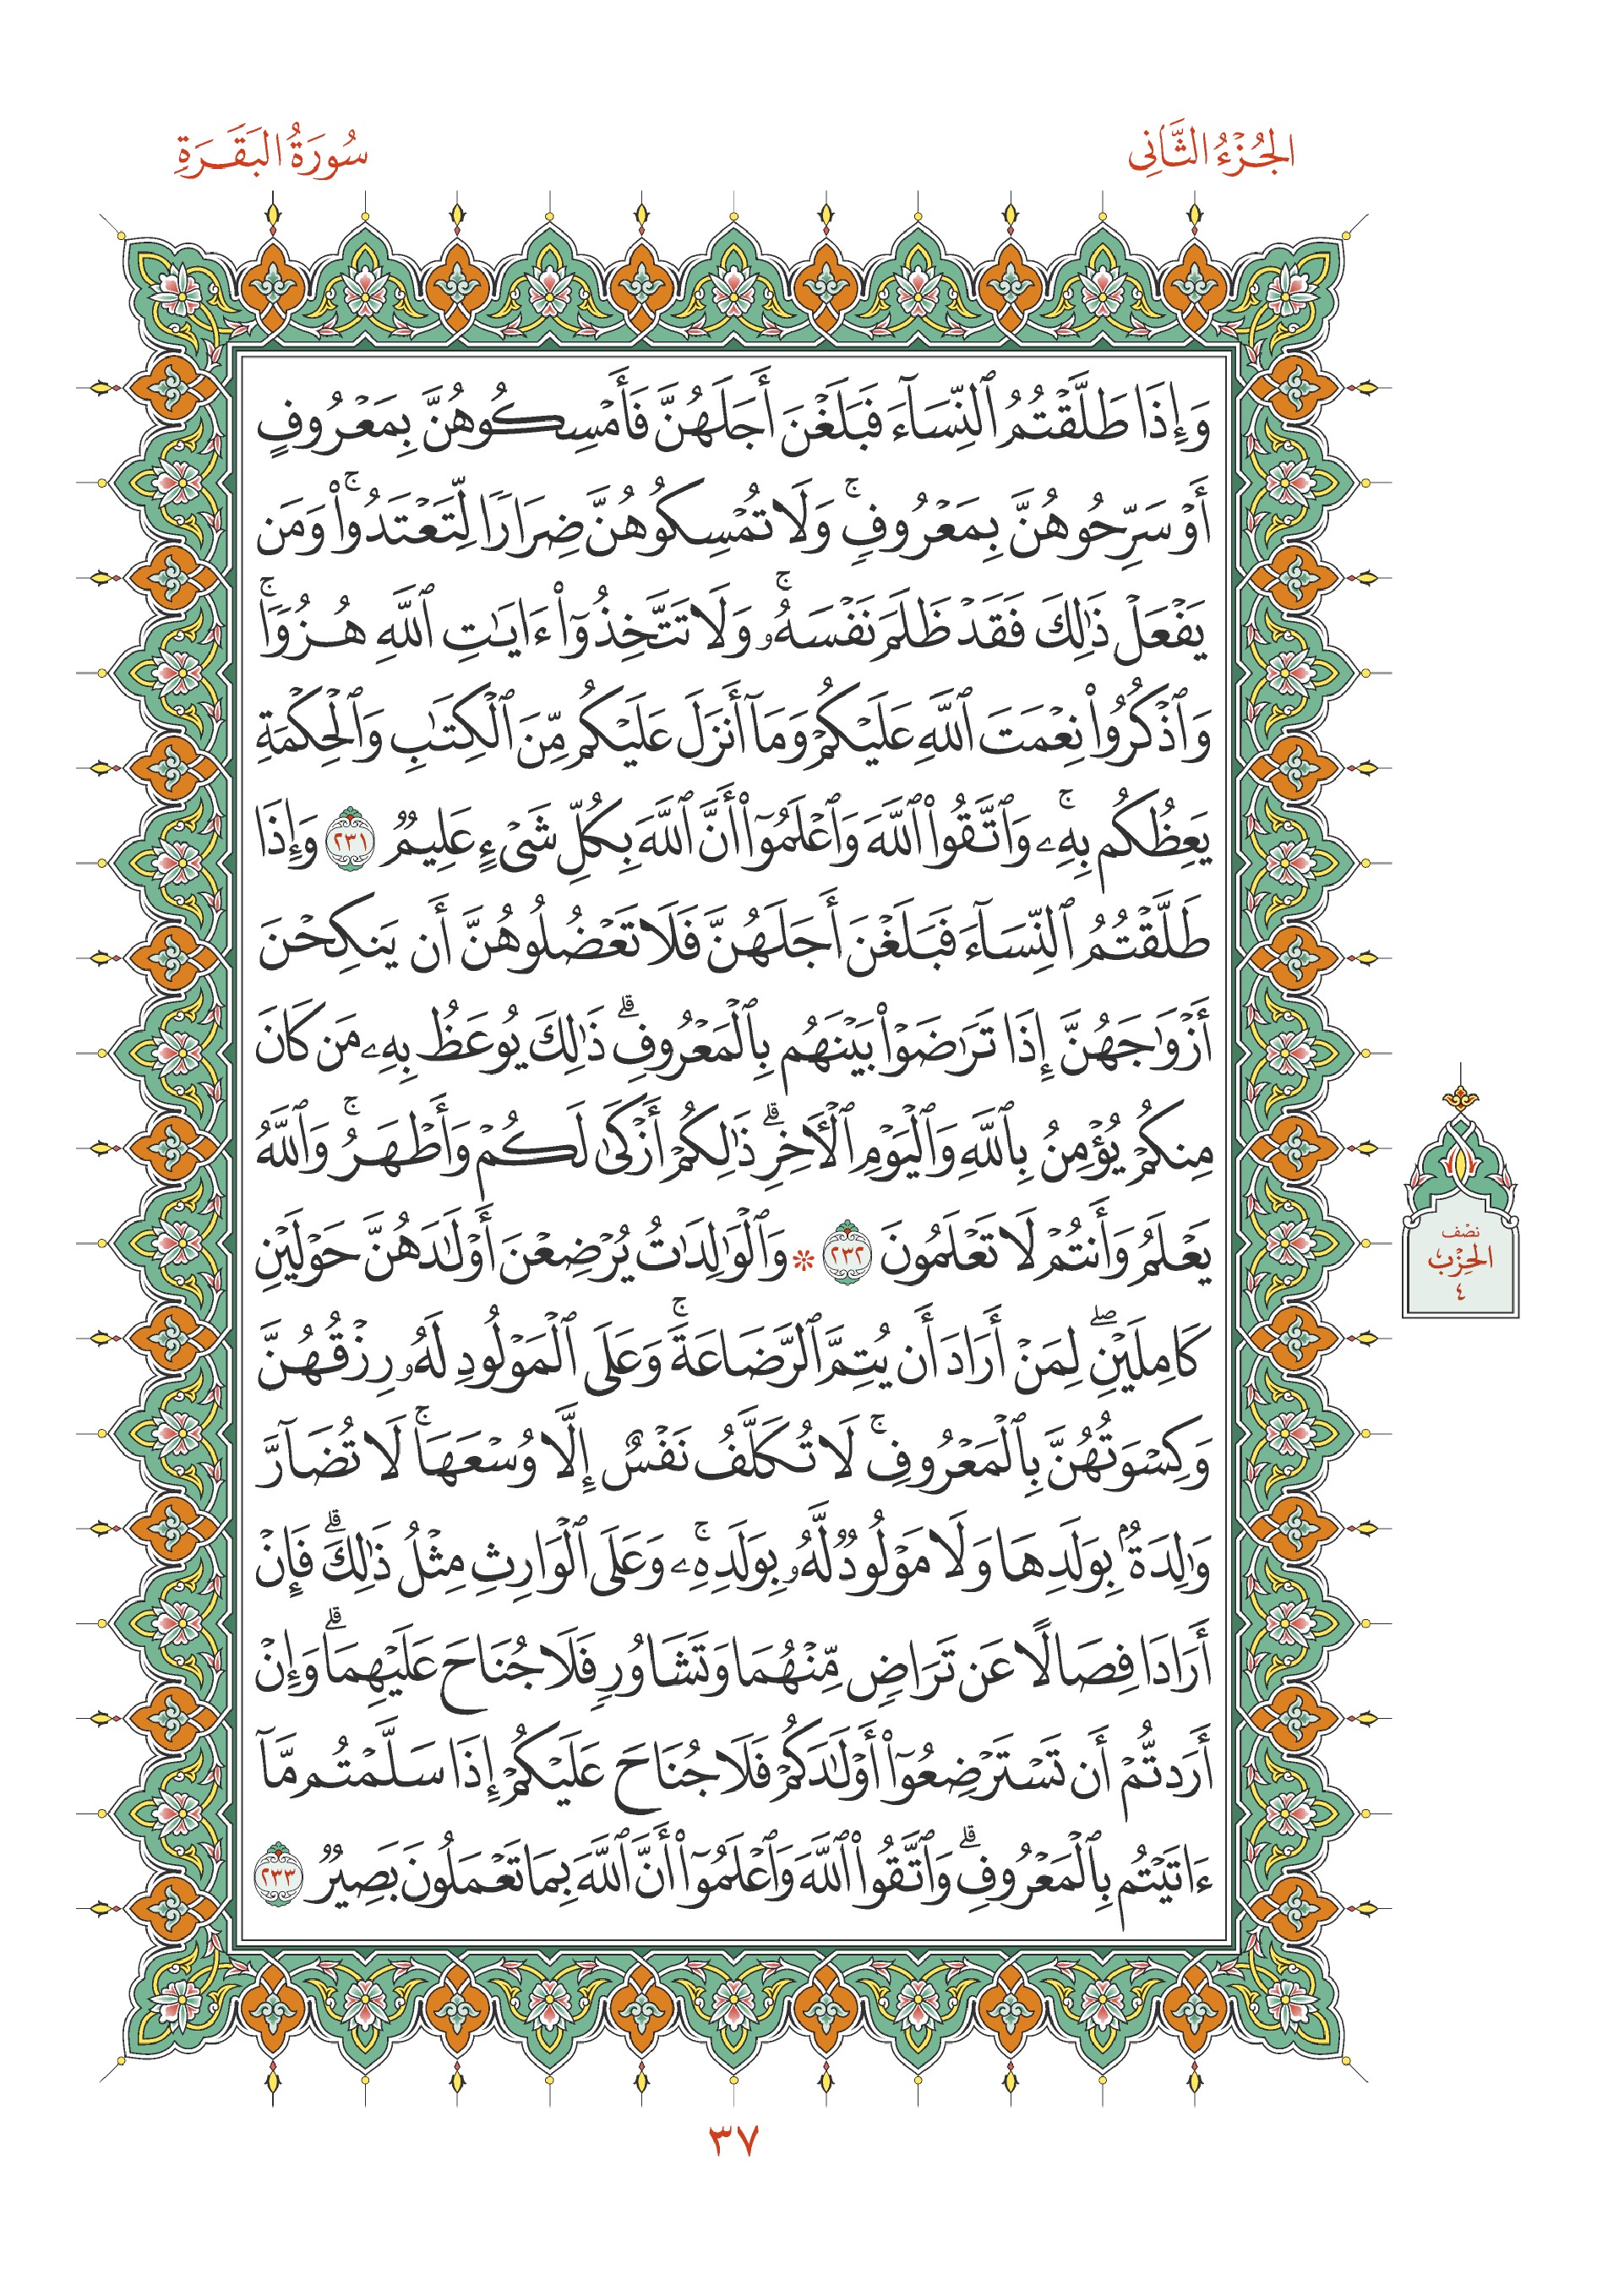 الجُزْءُ الثَّانِى
سُورَةُ البَقَرَةِ
وَإِذَا طَلَّقْتُمُ ٱلنِّسَآءَ فَبَلَغْنَ أَجَلَهُنَّ فَأَمْسِكُوهُنَّ بِمَعْرُوفٍ
أَوْ سَرِّحُوهُنَّ بِمَعْرُوفٍۚ وَلَا تُمْسِكُوهُنَّ ضِرَارًا لِّتَعْتَدُوا۟ۚ وَمَن
يَفْعَلْ ذَٰلِكَ فَقَدْ ظَلَمَ نَفْسَهُۥۚ وَلَا تَتَّخِذُوٓا۟ ءَايَـٰتِ ٱللَّهِ هُزُوًاۚ
وَٱذْكُرُوا۟ نِعْمَتَ ٱللَّهِ عَلَيْكُمْ وَمَآ أَنزَلَ عَلَيْكُم مِّنَ ٱلْكِتَـٰبِ وَٱلْحِكْمَةِ
يَعِظُكُم بِهِۦۚ وَٱتَّقُوا۟ ٱللَّهَ وَٱعْلَمُوٓا۟ أَنَّ ٱللَّهَ بِكُلِّ شَىْءٍ عَلِيمٌ ٢٣١ وَإِذَا
طَلَّقْتُمُ ٱلنِّسَآءَ فَبَلَغْنَ أَجَلَهُنَّ فَلَا تَعْضُلُوهُنَّ أَن يَنكِحْنَ
أَزْوَٰجَهُنَّ إِذَا تَرَٰضَوْا۟ بَيْنَهُم بِٱلْمَعْرُوفِۗ ذَٰلِكَ يُوعَظُ بِهِۦ مَن كَانَ
مِنكُمْ يُؤْمِنُ بِٱللَّهِ وَٱلْيَوْمِ ٱلْـَٔاخِرِۗ ذَٰلِكُمْ أَزْكَىٰ لَكُمْ وَأَطْهَرُۚ وَٱللَّهُ
يَعْلَمُ وَأَنتُمْ لَا تَعْلَمُونَ ٢٣٢ * وَٱلْوَٰلِدَٰتُ يُرْضِعْنَ أَوْلَـٰدَهُنَّ حَوْلَيْنِ
كَامِلَيْنِۖ لِمَنْ أَرَادَ أَن يُتِمَّ ٱلرَّضَاعَةَۚ وَعَلَى ٱلْمَوْلُودِ لَهُۥ رِزْقُهُنَّ
وَكِسْوَتُهُنَّ بِٱلْمَعْرُوفِۚ لَا تُكَلَّفُ نَفْسٌ إِلَّا وُسْعَهَاۚ لَا تُضَآرَّ
وَٰلِدَةٌۢ بِوَلَدِهَا وَلَا مَوْلُودٌ لَّهُۥ بِوَلَدِهِۦۚ وَعَلَى ٱلْوَارِثِ مِثْلُ ذَٰلِكَۗ فَإِنْ
أَرَادَا فِصَالًا عَن تَرَاضٍ مِّنْهُمَا وَتَشَاوُرٍ فَلَا جُنَاحَ عَلَيْهِمَاۗ وَإِنْ
أَرَدتُّمْ أَن تَسْتَرْضِعُوٓا۟ أَوْلَـٰدَكُمْ فَلَا جُنَاحَ عَلَيْكُمْ إِذَا سَلَّمْتُم مَّآ
ءَاتَيْتُم بِٱلْمَعْرُوفِۗ وَٱتَّقُوا۟ ٱللَّهَ وَٱعْلَمُوٓا۟ أَنَّ ٱللَّهَ بِمَا تَعْمَلُونَ بَصِيرٌ ٢٣٣
نصْف
الحِزْب
٤
٣٧